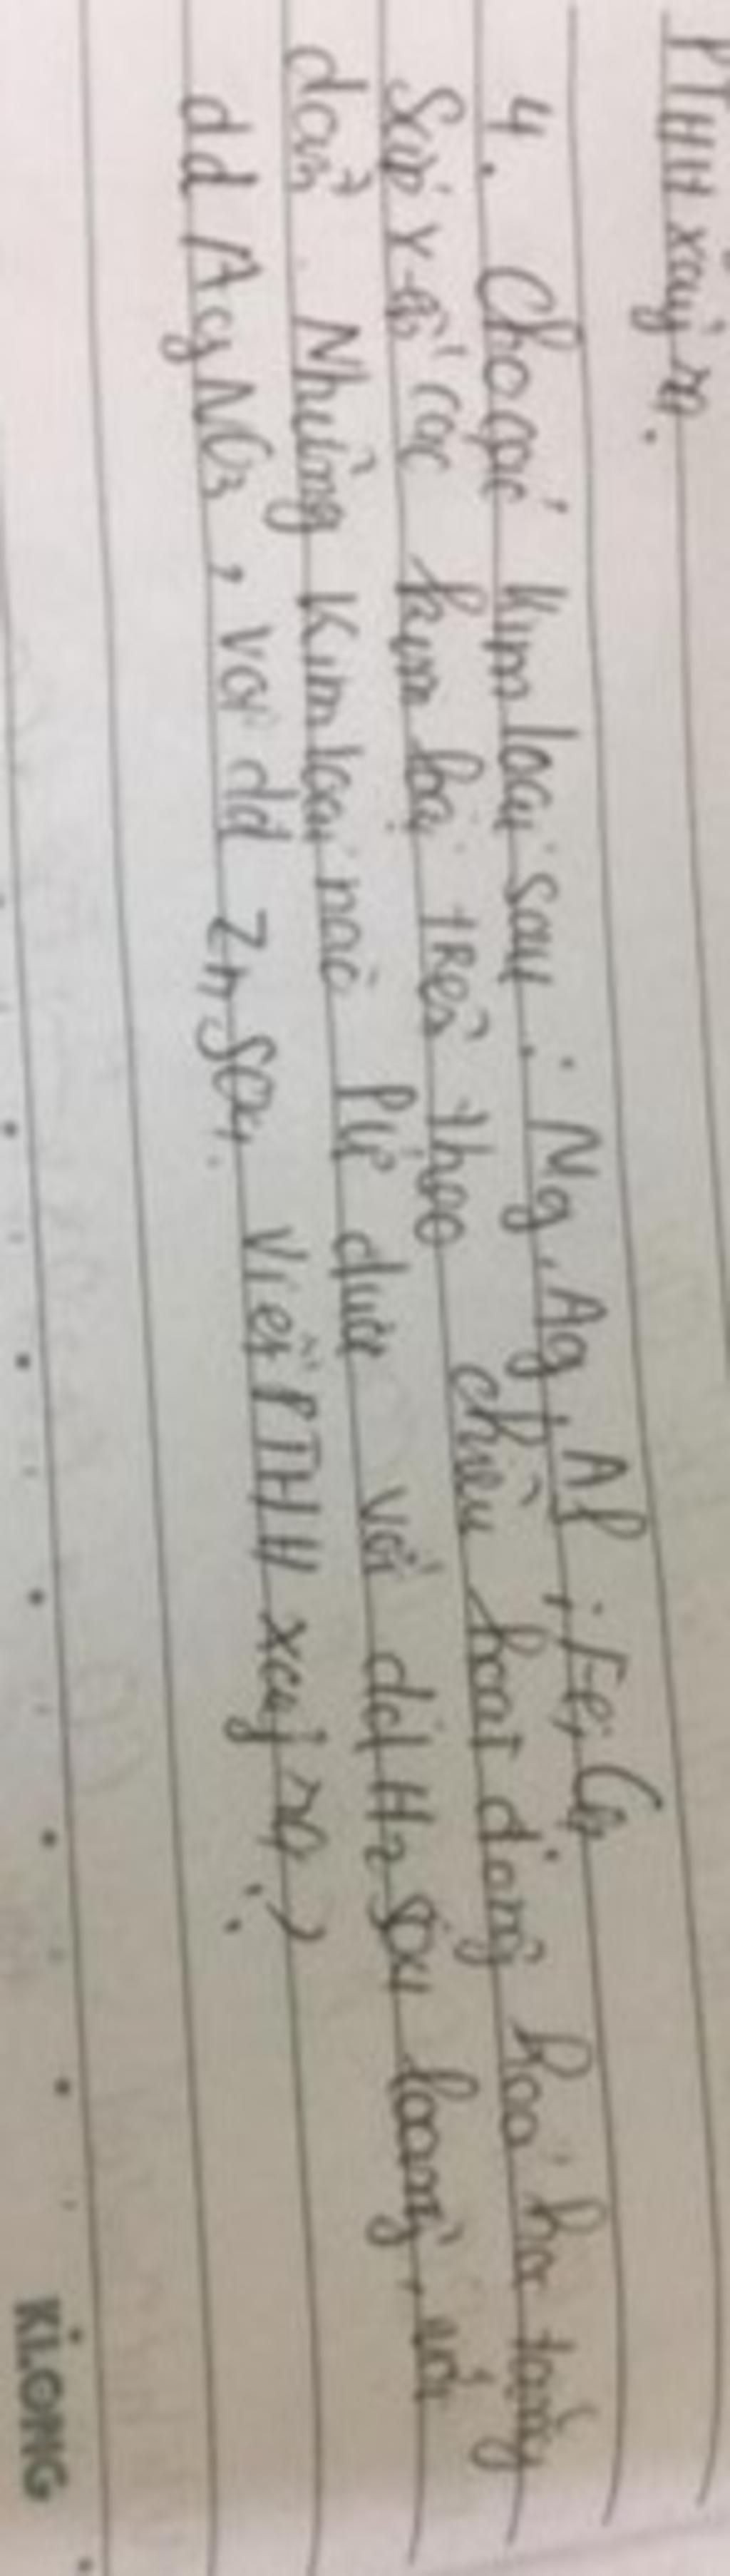 PTHH xảy ra.
4. Cho các kim loại sau : Mg, Ag, Al ; Fe; Cu
Sắp xếp các kim loại trên theo chiều hoạt động hoá học tăng
dần. Những kim loại nào pứ được với dd H2SO4 loãng, với
dd AgNO3, với dd ZnSO4. Viết PTHH xảy ra?
KLONG